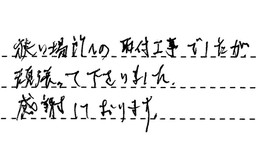 狭い場所への取付工事でしたが
頑張って下さいました。
感謝しております。